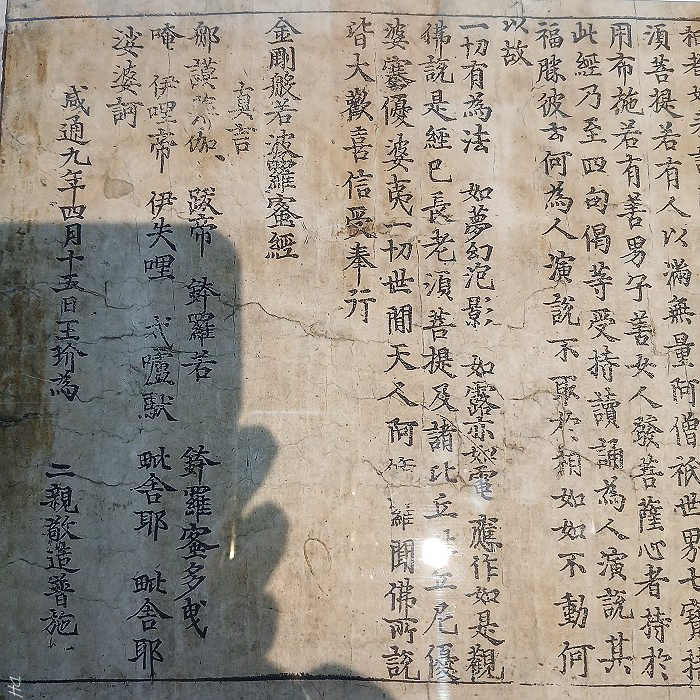 須菩提若有人以滿無量阿僧祇世界七寶持
用布施若有善男子善女人發菩薩心者持於
此經乃至四句偈等受持讀誦為人演說其
福勝彼云何為人演說不取於相如如不動何
以故
一切有為法 如夢幻泡影 如露亦如電 應作如是觀
佛說是經已長老須菩提及諸比丘比丘尼優
婆塞優婆夷一切世間天人阿修羅聞佛所說
皆大歡喜信受奉行
金剛般若波羅蜜經
真言
那謨 伽 跋帝 鉢羅若 鉢羅蜜多曳
唵 伊哩帝 伊失哩 戍嚧馱 毗舍耶 毗舍耶
娑婆訶
咸通九年四月十五日王玠為 二親敬造普施